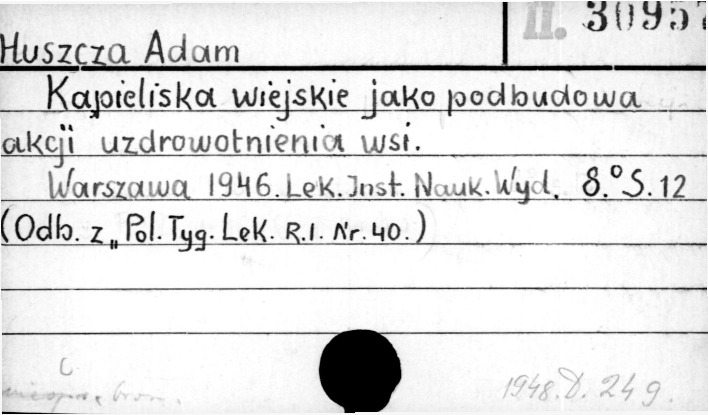 II. 30957
Huszcza Adam
Kąpieliska wiejskie jako podbudowa
akcji uzdrowotnienia wsi.
Warszawa 1946. Lek. Inst. Nauk. Wyd. 8.° S. 12
(Odb. z „Pol. Tyg. Lek. R.I. Nr. 40.)
1948. D. 249.